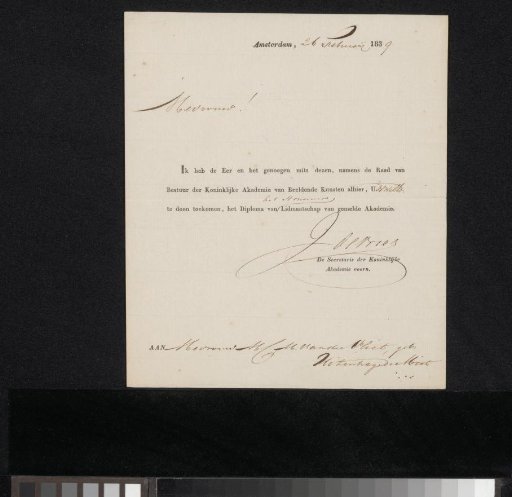 Amsterdam, 26 Februarij 1839
Mevrouw!
Ik heb de Eer en het genoegen mits dezen, namens de Raad van
Bestuur der Koninklijke Akademie van Beeldende Kunsten alhier, U
het Honoraire
te doen toekomen, het Diploma van/Lidmaatschap van gemelde Akademie.
J. de Vries
De Secretaris der Koninklijke
Akademie voorn.
AAN Mevrouw M. C. M. van der Vliet, geb.